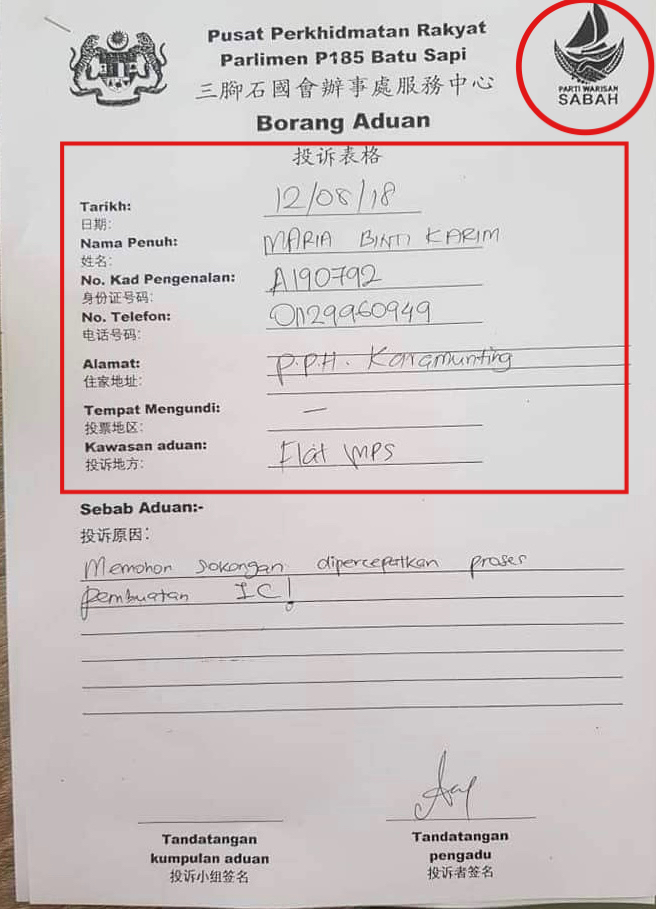 Pusat Perkhidmatan Rakyat
Parlimen P185 Batu Sapi
三腳石國會辦事處服務中心
PARTI WARISAN
SABAH
Borang Aduan
投诉表格
Tarikh: 12/08/18
日期:
Nama Penuh: MARIA BINTI KARIM
姓名:
No. Kad Pengenalan: A190792
身份证号码:
No. Telefon: 01129960949
电话号码:
Alamat: P.P.H. Karamunting
住家地址:
Tempat Mengundi: —
投票地区:
Kawasan aduan: Flat MPS
投诉地方:
Sebab Aduan:-
投诉原因:
Memohon sokongan dipercepatkan proses
pembuatan IC!
Tandatangan
kumpulan aduan
投诉小组签名
Tandatangan
pengadu
投诉者签名